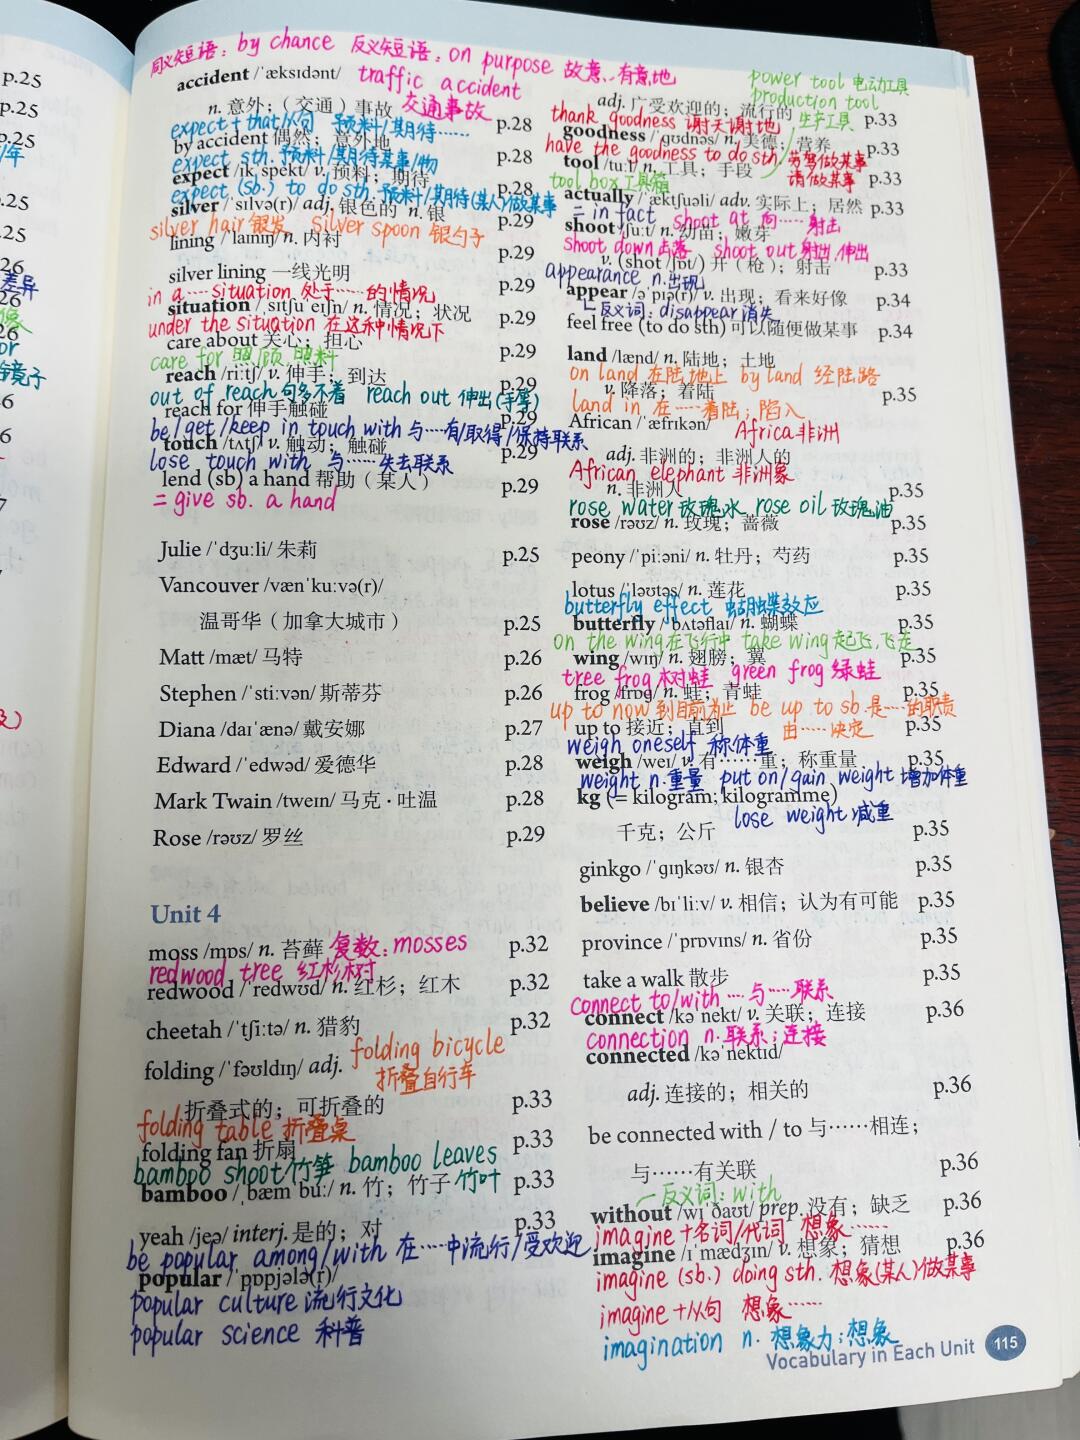 同义短语：by chance 反义短语：on purpose 故意、有意地
accident /ˈæksɪdənt/ traffic accident
n. 意外；（交通）事故 交通事故 p.28
expect + that从句 预料/期待……
by accident 偶然；意外地 p.28
expect sth. 预料/期待某事/物
expect /ɪkˈspekt/ v. 预料；期待 p.28
expect (sb.) to do sth. 预料/期待(某人)做某事
silver /ˈsɪlvə(r)/ adj. 银色的 n. 银 p.29
silver hair 银发 silver spoon 银勺子
lining /ˈlaɪnɪŋ/ n. 内衬 p.29
silver lining 一线光明 p.29
in a …… situation 处于……的情况
situation /ˌsɪtʃuˈeɪʃn/ n. 情况；状况 p.29
under the situation 在这种情况下
care about 关心；担心 p.29
care for 照顾，照料
reach /riːtʃ/ v. 伸手；到达 p.29
out of reach 够不着 reach out 伸出(手臂)
reach for 伸手触碰 p.29
be/get/keep in touch with 与……有/取得/保持联系
touch /tʌtʃ/ v. 触动；触碰 p.29
lose touch with 与……失去联系
lend (sb) a hand 帮助（某人） p.29
= give sb. a hand
Julie /ˈdʒuːli/ 朱莉 p.25
Vancouver /vænˈkuːvə(r)/
温哥华（加拿大城市） p.25
Matt /mæt/ 马特 p.26
Stephen /ˈstiːvən/ 斯蒂芬 p.26
Diana /daɪˈænə/ 戴安娜 p.27
Edward /ˈedwəd/ 爱德华 p.28
Mark Twain /tweɪn/ 马克·吐温 p.28
Rose /rəʊz/ 罗丝 p.29
Unit 4
moss /mɒs/ n. 苔藓 复数：mosses p.32
redwood tree 红杉树
redwood /ˈredwʊd/ n. 红杉；红木 p.32
cheetah /ˈtʃiːtə/ n. 猎豹 p.32
folding /ˈfəʊldɪŋ/ adj. folding bicycle
折叠自行车
折叠式的；可折叠的 p.33
folding table 折叠桌
folding fan 折扇 p.33
bamboo shoot 竹笋 bamboo leaves
bamboo /ˌbæmˈbuː/ n. 竹；竹子 竹叶 p.33
yeah /jeə/ interj. 是的；对 p.33
be popular among/with 在……中流行/受欢迎
popular /ˈpɒpjələ(r)/
popular culture 流行文化
popular science 科普
power tool 电动工具
production tool
adj. 广受欢迎的；流行的 生产工具 p.33
thank goodness 谢天谢地
goodness /ˈɡʊdnəs/ n. 美德；营养 p.33
have the goodness to do sth. 劳驾做某事
tool /tuːl/ n. 工具；手段 请做某事 p.33
tool box 工具箱
actually /ˈæktʃuəli/ adv. 实际上；居然 p.33
= in fact shoot at 向……射击
shoot /ʃuːt/ n. 幼苗；嫩芽
shoot down 击落 shoot out 射出，伸出
v. (shot /ʃɒt/) 开（枪）；射击 p.33
appearance n.出现
appear /əˈpɪə(r)/ v. 出现；看来好像 p.34
反义词：disappear 消失
feel free (to do sth) 可以随便做某事 p.34
land /lænd/ n. 陆地；土地
on land 在陆地上 by land 经陆路
v. 降落；着陆 p.35
land in 在……着陆；陷入
African /ˈæfrɪkən/ Africa 非洲
adj. 非洲的；非洲人的
African elephant 非洲象
n. 非洲人 p.35
rose water 玫瑰水 rose oil 玫瑰油
rose /rəʊz/ n. 玫瑰；蔷薇 p.35
peony /ˈpiːəni/ n. 牡丹；芍药 p.35
lotus /ˈləʊtəs/ n. 莲花 p.35
butterfly effect 蝴蝶效应
butterfly /ˈbʌtəflaɪ/ n. 蝴蝶 p.35
on the wing 在飞行中 take wing 起飞，飞走
wing /wɪŋ/ n. 翅膀；翼 p.35
tree frog 树蛙 green frog 绿蛙
frog /frɒɡ/ n. 蛙；青蛙 p.35
up to now 到目前为止 be up to sb. 是……的职责
up to 接近；直到 由……决定 p.35
weigh oneself 称体重
weigh /weɪ/ v. 有……重；称重量 p.35
weight n.重量 put on/gain weight 增加体重
kg (= kilogram; kilogramme)
lose weight 减重
千克；公斤 p.35
ginkgo /ˈɡɪŋkəʊ/ n. 银杏 p.35
believe /bɪˈliːv/ v. 相信；认为有可能 p.35
province /ˈprɒvɪns/ n. 省份 p.35
take a walk 散步 p.35
connect to/with …与……联系
connect /kəˈnekt/ v. 关联；连接 p.36
connection n.联系；连接
connected /kəˈnektɪd/
adj. 连接的；相关的 p.36
be connected with / to 与……相连；
与……有关联 p.36
反义词：with
without /wɪˈðaʊt/ prep. 没有；缺乏 p.36
imagine +名词/代词 想象……
imagine /ɪˈmædʒɪn/ v. 想象；猜想 p.36
imagine (sb.) doing sth. 想象(某人)做某事
imagine +从句 想象……
imagination n. 想象力；想象
Vocabulary in Each Unit 115